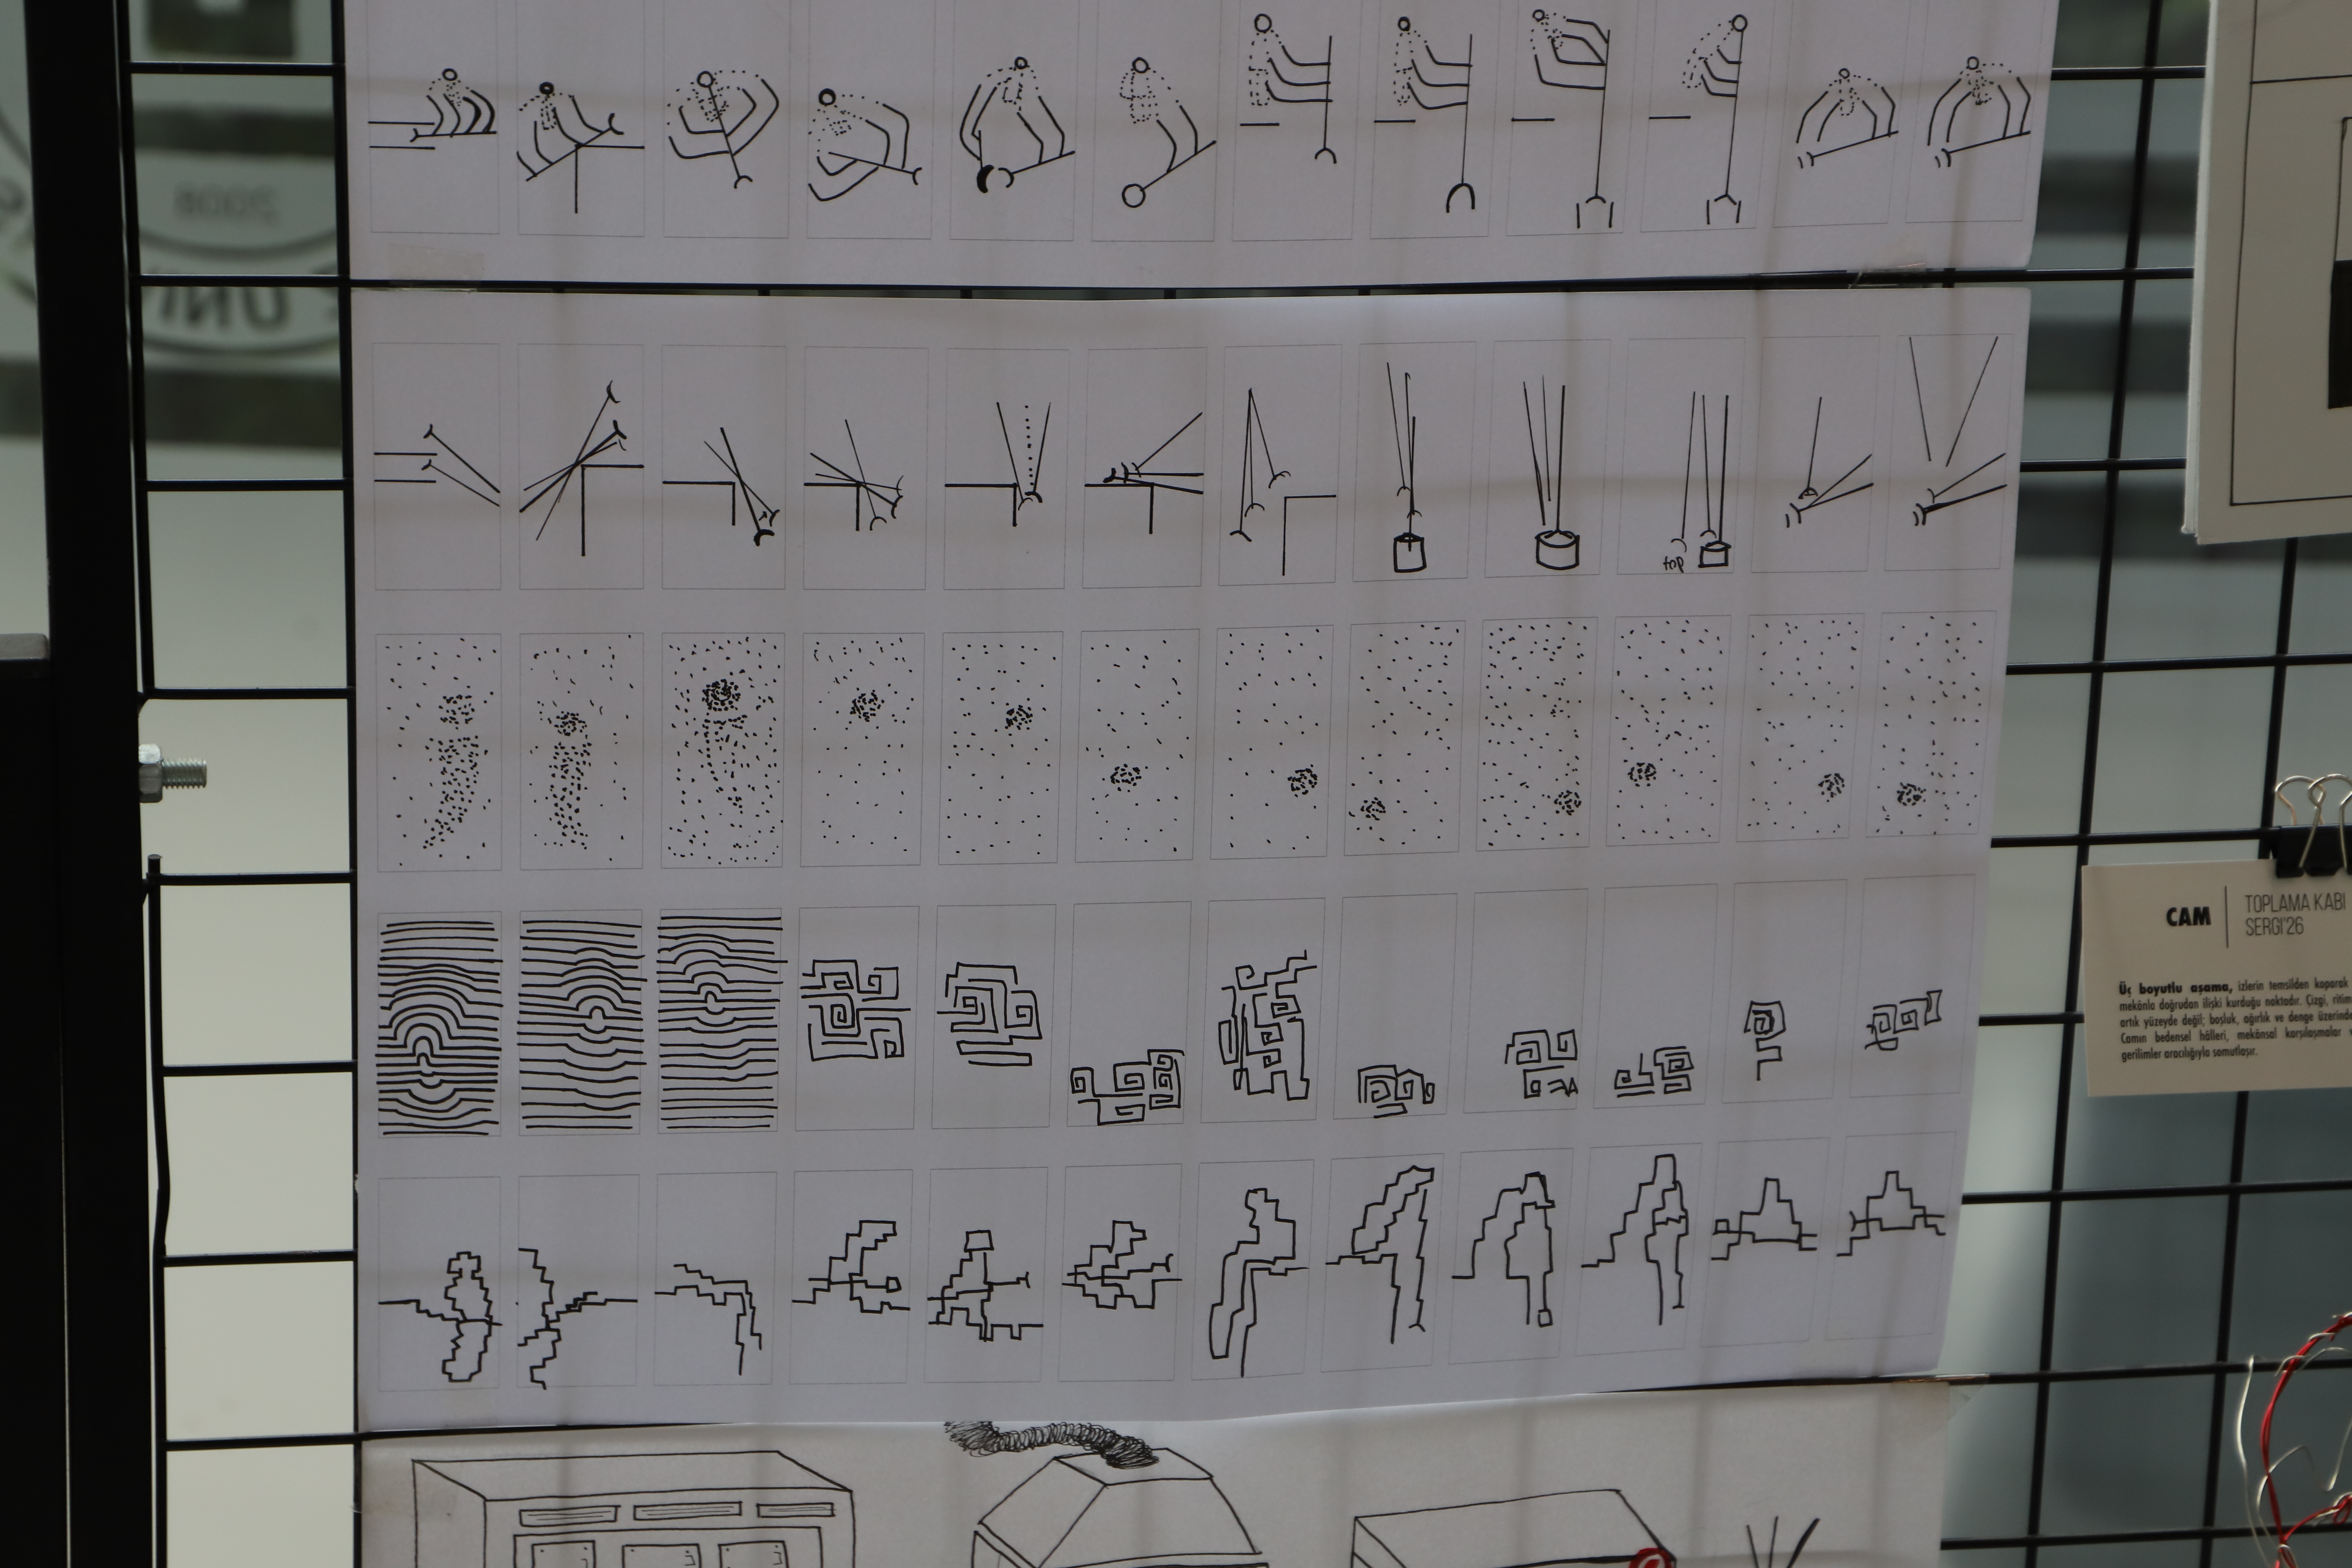 2008
UNİ
top
CAM
TOPLAMA KABI
SERGİ'26
Üç boyutlu aşama, izlerin temsilden koparak
mekânla doğrudan ilişki kurduğu noktadır. Çizgi, ritim
artık yüzeyde değil; boşluk, ağırlık ve denge üzerinde
Camın bedensel hâlleri, mekânsal karşılaşmalar
gerilimler aracılığıyla somutlaşır.